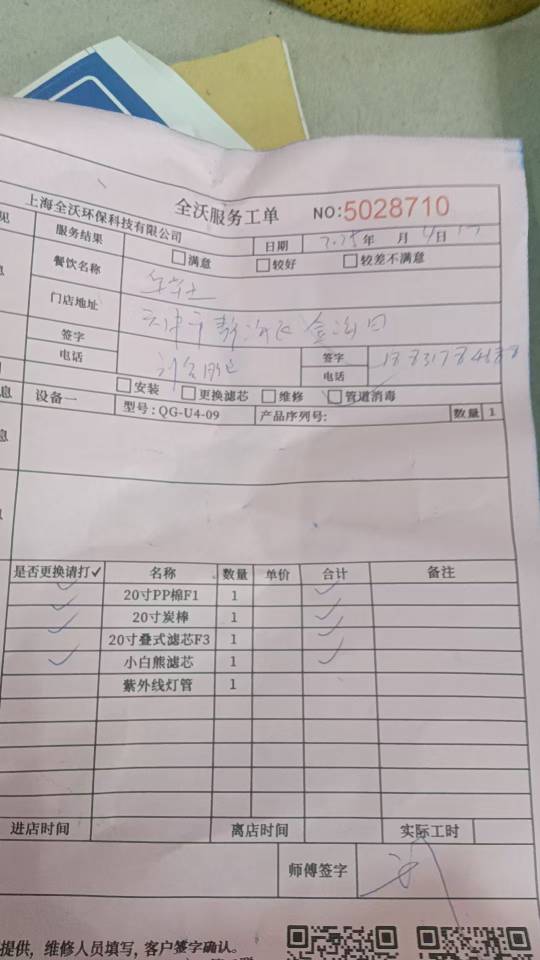 上海全沃环保科技有限公司 全沃服务工单 NO:5028710
见 服务结果 满意 日期 2025年 月4日17
餐饮名称 较好 较差不满意
门店地址 天津市静海区
签字 签字
电话 电话
安装 更换滤芯 维修 管道消毒
息 设备一 型号:QG-U4-09 产品序列号: 数量 1
息
是否更换请打✓ 名称 数量 单价 合计 备注
✓ 20寸PP棉F1 1 ✓
✓ 20寸炭棒 1 ✓
✓ 20寸叠式滤芯F3 1 ✓
✓ 小白熊滤芯 1 ✓
紫外线灯管 1
进店时间 离店时间 实际工时
师傅签字
提供，维修人员填写，客户签字确认。